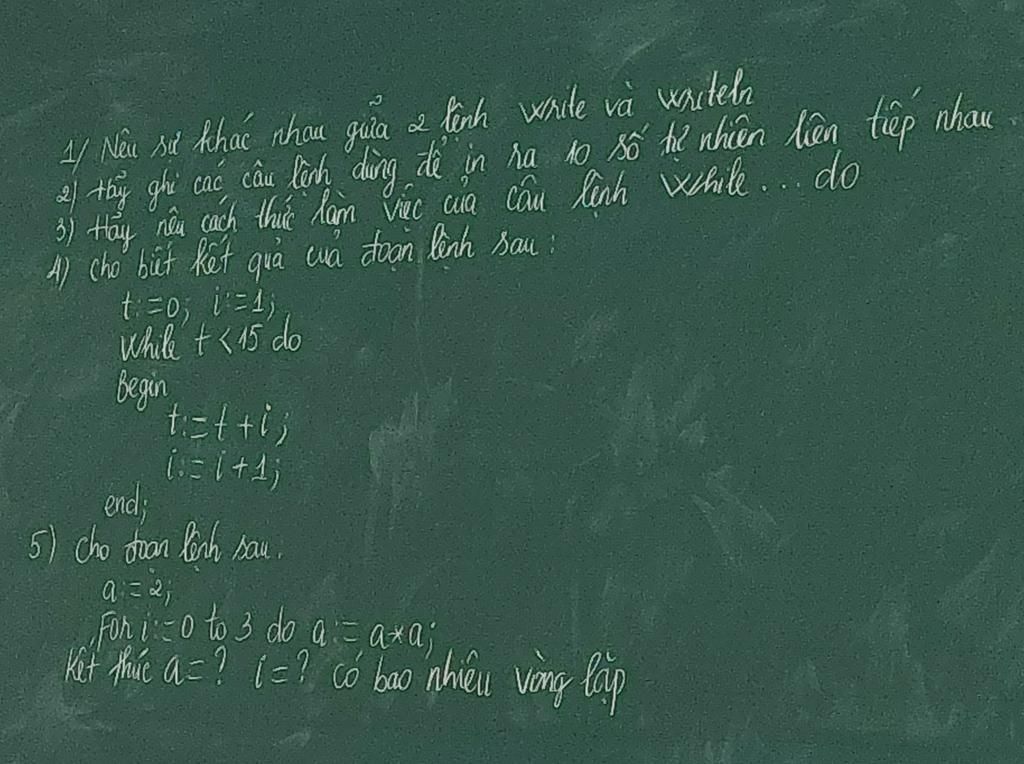 1/ Nêu sự khác nhau giữa 2 lệnh write và writeln
2) Hãy ghi các câu lệnh dùng để in ra 10 số tự nhiên liên tiếp nhau.
3) Hãy nêu cách thức làm việc của câu lệnh While... do
4) Cho biết kết quả của đoạn lệnh sau:
t:=0; i:=1;
While t<15 do
Begin
t:=t+i;
i:=i+1;
end;
5) Cho đoạn lệnh sau.
a:=2;
For i:=0 to 3 do a:=a*a;
Kết thúc a=? i=? có bao nhiêu vòng lặp